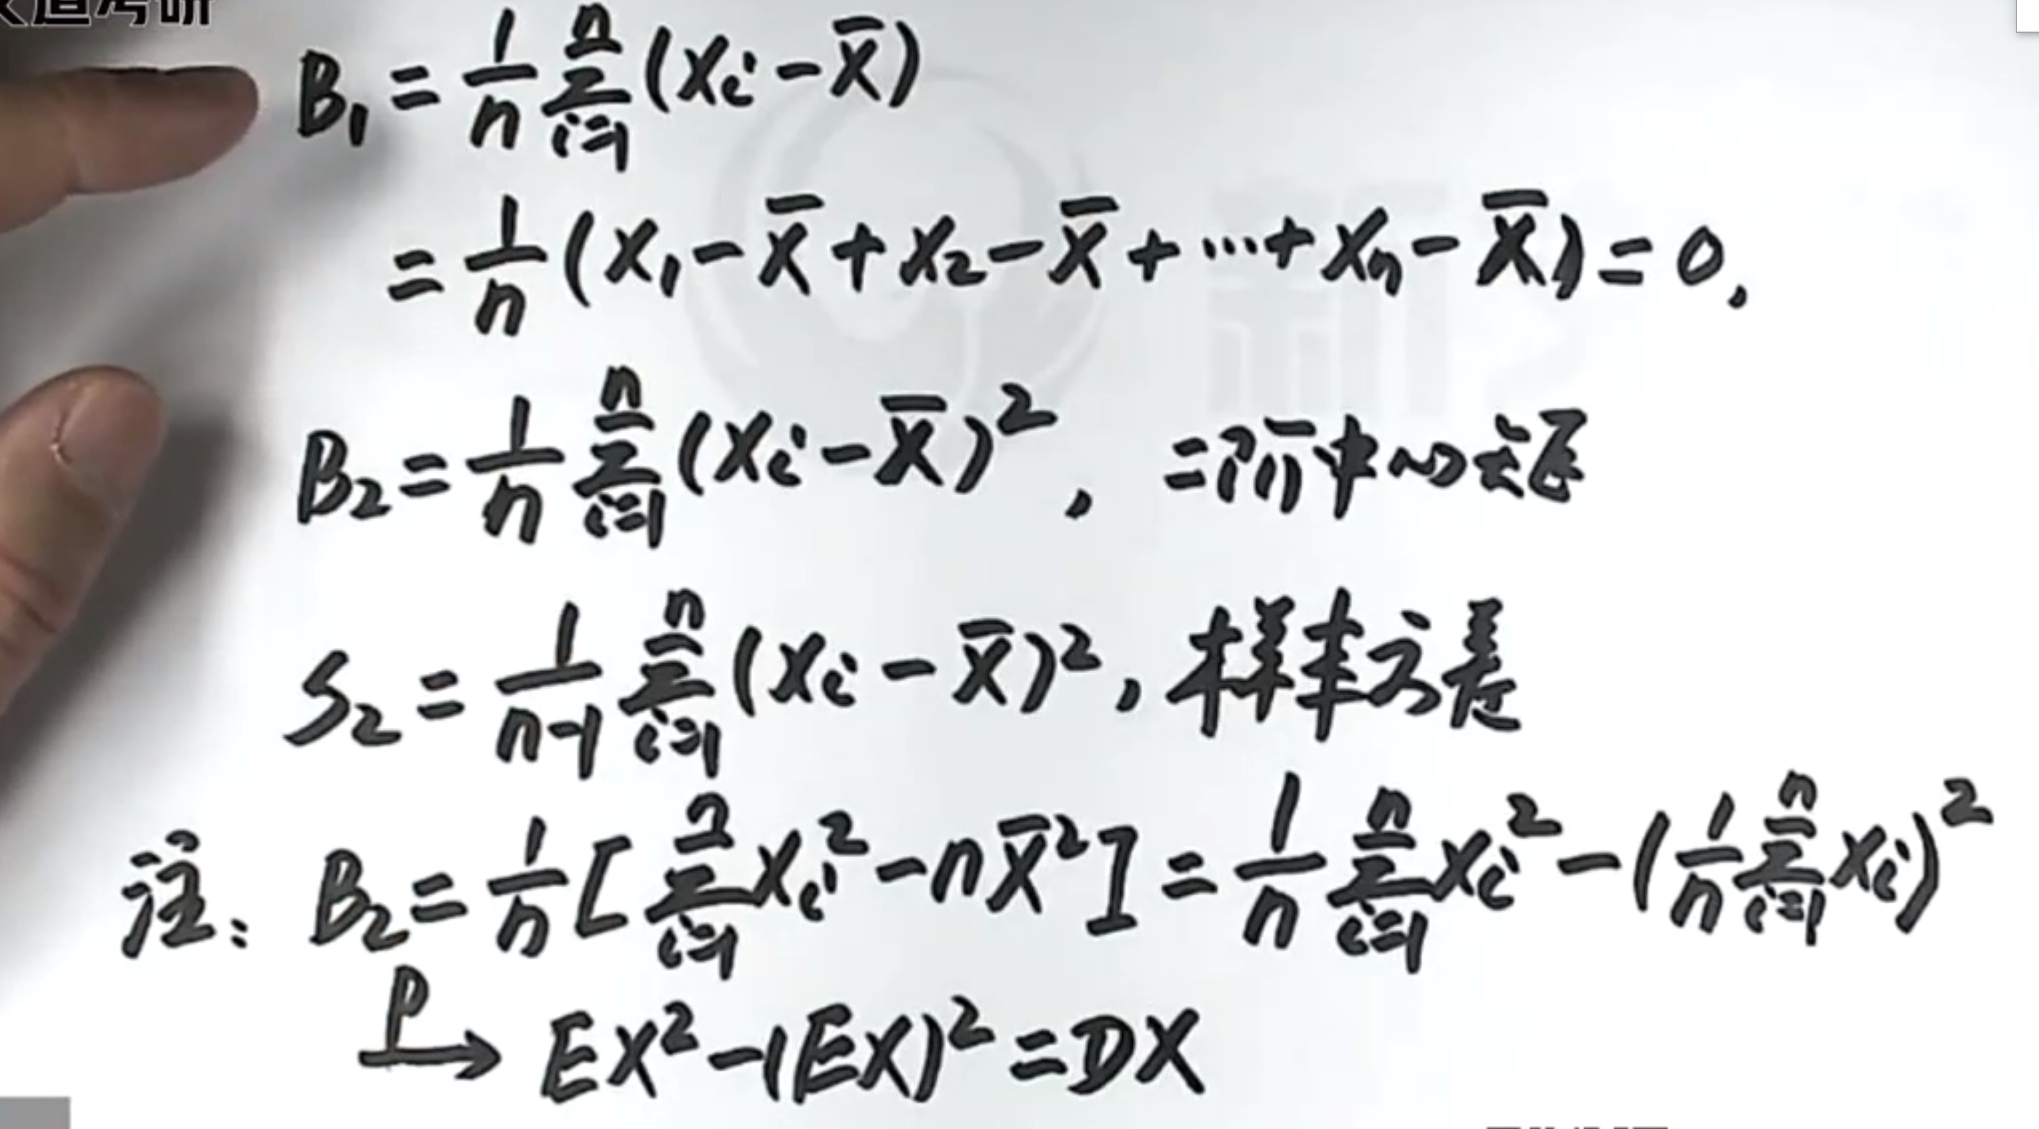 道考研
B₁ = 1/n ∑_{i=1}^{n} (Xᵢ - X̄)
= 1/n (X₁ - X̄ + X₂ - X̄ + ⋯ + Xₙ - X̄) = 0,
B₂ = 1/n ∑_{i=1}^{n} (Xᵢ - X̄)², 二阶中心矩
S₂ = 1/(n-1) ∑_{i=1}^{n} (Xᵢ - X̄)², 样本方差
注: B₂ = 1/n [∑_{i=1}^{n} Xᵢ² - nX̄²] = 1/n ∑_{i=1}^{n} Xᵢ² - (1/n ∑_{i=1}^{n} Xᵢ)²
P→ EX² - (EX)² = DX